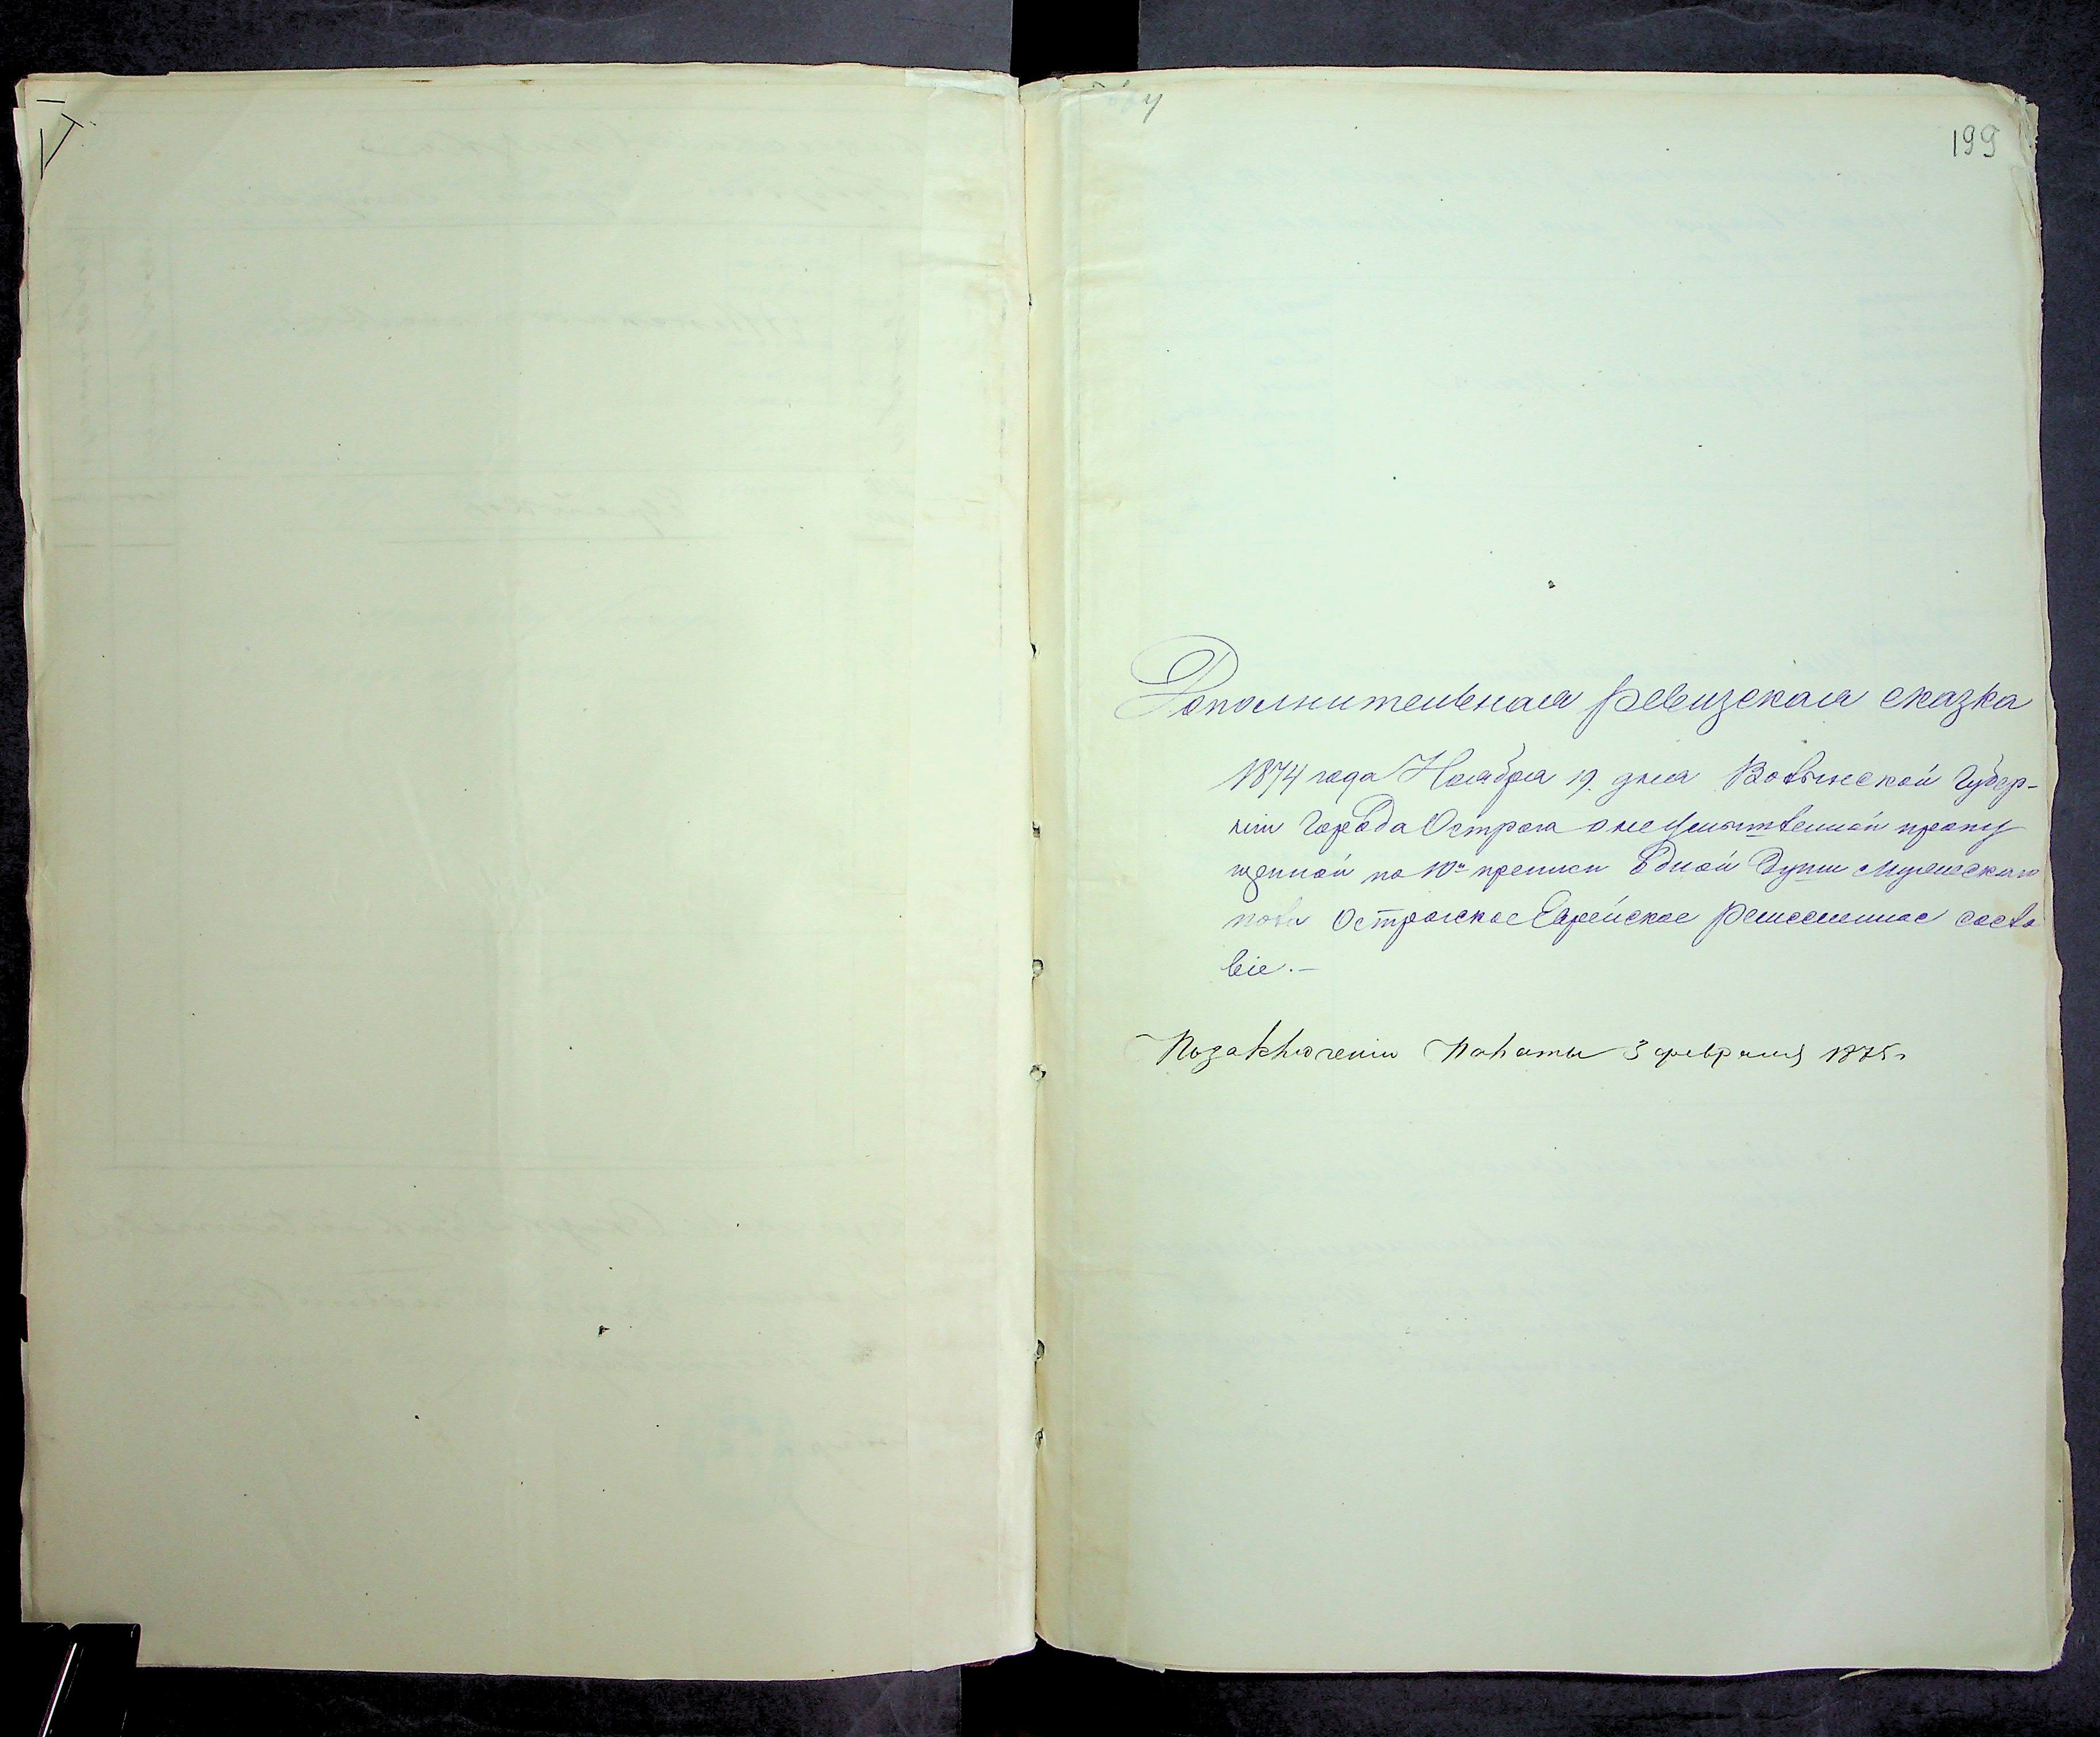 199
Дополнительная ревизская сказка
1874 года Ноября 19 дня Волынской Губер-
ніи Города Острога о неумышленной пропу
щенной по 10й переписи одной души мужескаго
пола Острожское Еврейское ремесленное сосло
віе.—
По заключенію Палаты 3 февраля 1875 г